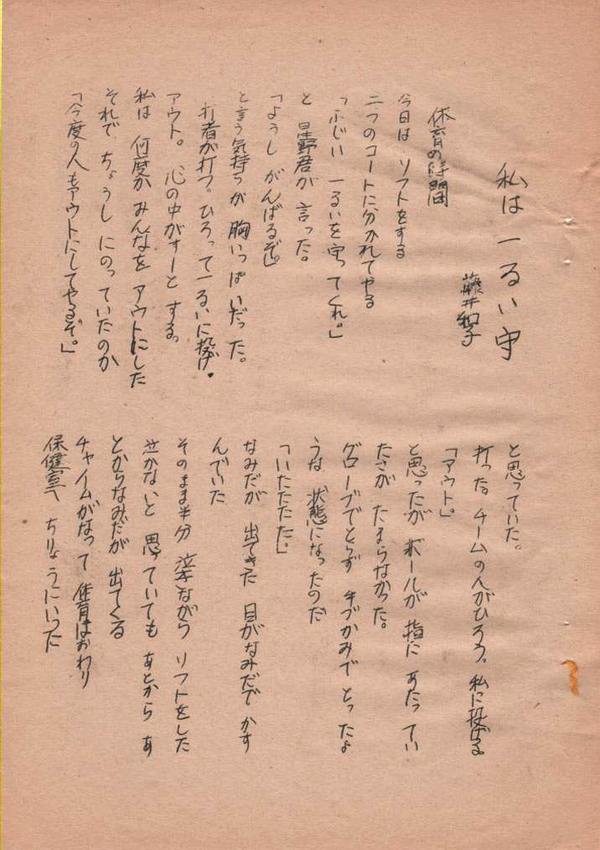 私は一るい守
藤井和子
体育の時間
今日は ソフトをする
二つのコートに分かれてやる
「ふじい 一るいを守ってくれ。」
と 星野君が 言った。
「ようし がんばるぞ」
と言う気持ちが 胸いっぱいだった。
打者が打つ。ひろって一るいに投げ。
アウト。 心の中がすーと する。
私は 何度か みんなを アウトにした
それで ちょうし にのっていたのか
「今度の人もアウトにしてやるぞ。」
と思っていた。
打った。チームの人がひろう。私に投げる
「アウト」。
と思ったが ボールが 指に あたってい
たさが たまらなかった。
グローブでとらず 手づかみで とったよ
うな 状態になったのだ
「いたたたた。」
なみだが 出てきた 目がなみだで かす
んでいた
そのまま半分 泣きながら ソフトをした
せかないと 思っていても あとから あ
とからなみだが 出てくる
チャイムがなって 体育はおわり
保健室へ ちりょうにいった